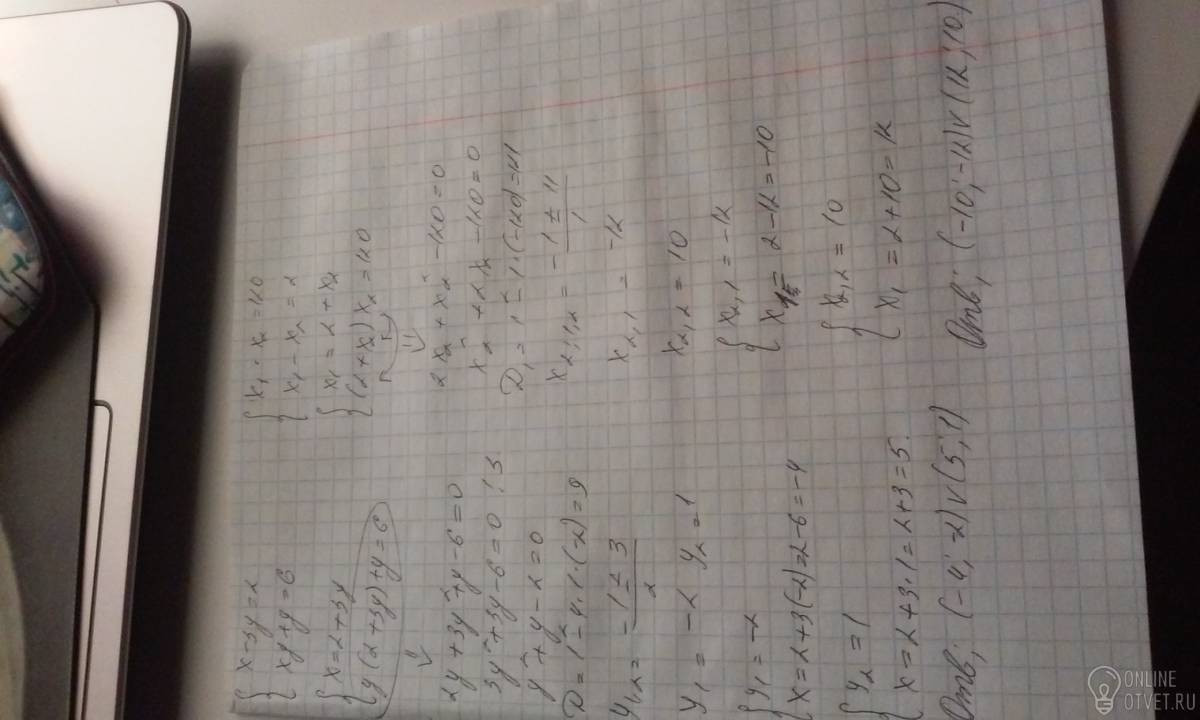 { x - 3y = 2
{ xy + y = 6
{ x = 2 + 3y
{ y(2 + 3y) + y = 6
⇓
2y + 3y² + y - 6 = 0
3y² + 3y - 6 = 0 | : 3
y² + y - 2 = 0
D = 1² - 4·1·(-2) = 9
y₁,₂ = (-1 ± 3)/2
y₁ = -2 y₂ = 1
{ y₁ = -2
{ x = 2 + 3(-2) = 2 - 6 = -4
{ y₂ = 1
{ x = 2 + 3·1 = 2 + 3 = 5.
Отв; (-4; -2) v (5; 1)
{ x₁ · x₂ = 120
{ x₁ - x₂ = 2
{ x₁ = 2 + x₂
{ (2 + x₂) x₂ = 120
⇓
2x₂ + x₂² - 120 = 0
x₂² + 2x₂ - 120 = 0
D₁ = 1² - 1·(-120) = 121
x₂;₁,₂ = (-1 ± 11)/1
x₂,₁ = -12
x₂,₂ = 10
{ x₂,₁ = -12
{ x₁ = 2 - 12 = -10
{ x₂,₂ = 10
{ x₁ = 2 + 10 = 12
Отв; (-10; -12) v (12; 10)
ONLINE
OTVET.RU